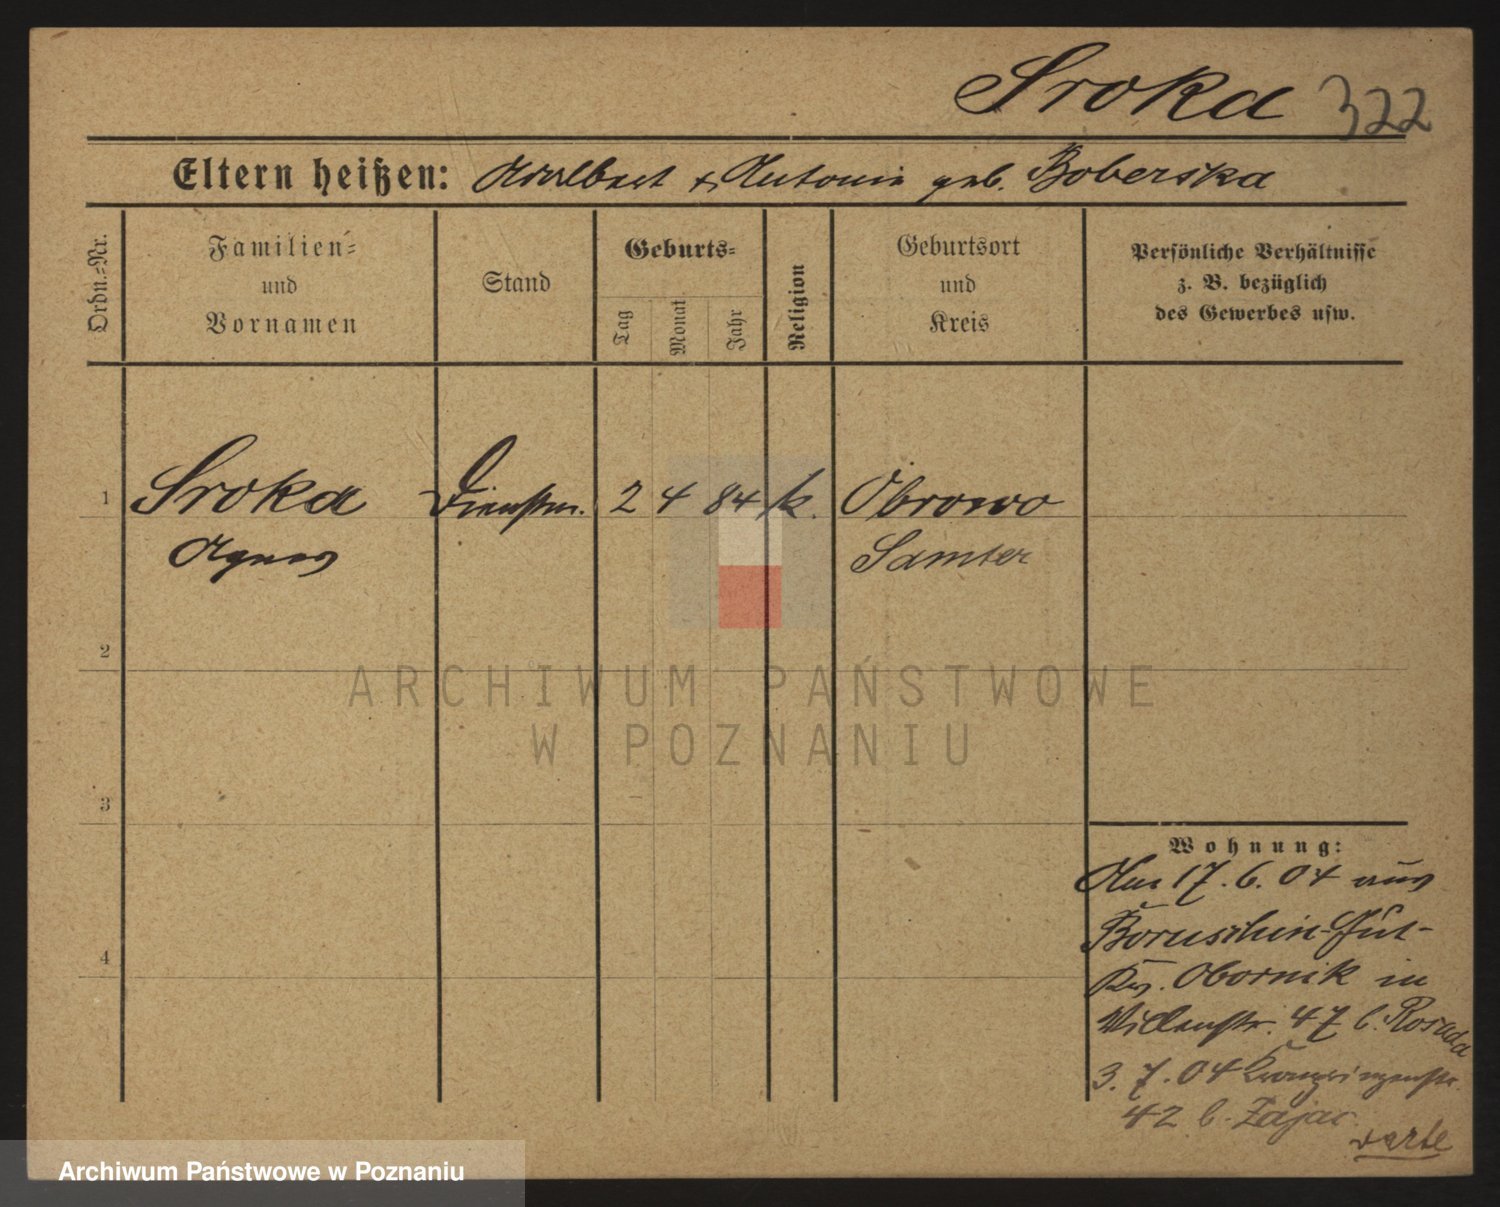 Sroka 322
Eltern heißen: Adalbert & Antonie geb. Boberska
Ordn.=Nr.
Familien=
und
Vornamen
Stand
Geburts=
Tag
Monat
Jahr
Religion
Geburtsort
und
Kreis
Persönliche Verhältnisse
z. B. bezüglich
des Gewerbes usw.
1 Sroka Dienstm. 2 4 84 k. Obrowo
Agnes Samter
2
ARCHIWUM PAŃSTWOWE
W POZNANIU
3
Wohnung:
Am 17. 6. 04 aus
Boruschin-Gut-
4
Krs. Obornik in
Villenstr. 47 b.
3. 7. 04 Kronprinzenstr.
42 b. Zajac
Archiwum Państwowe w Poznaniu